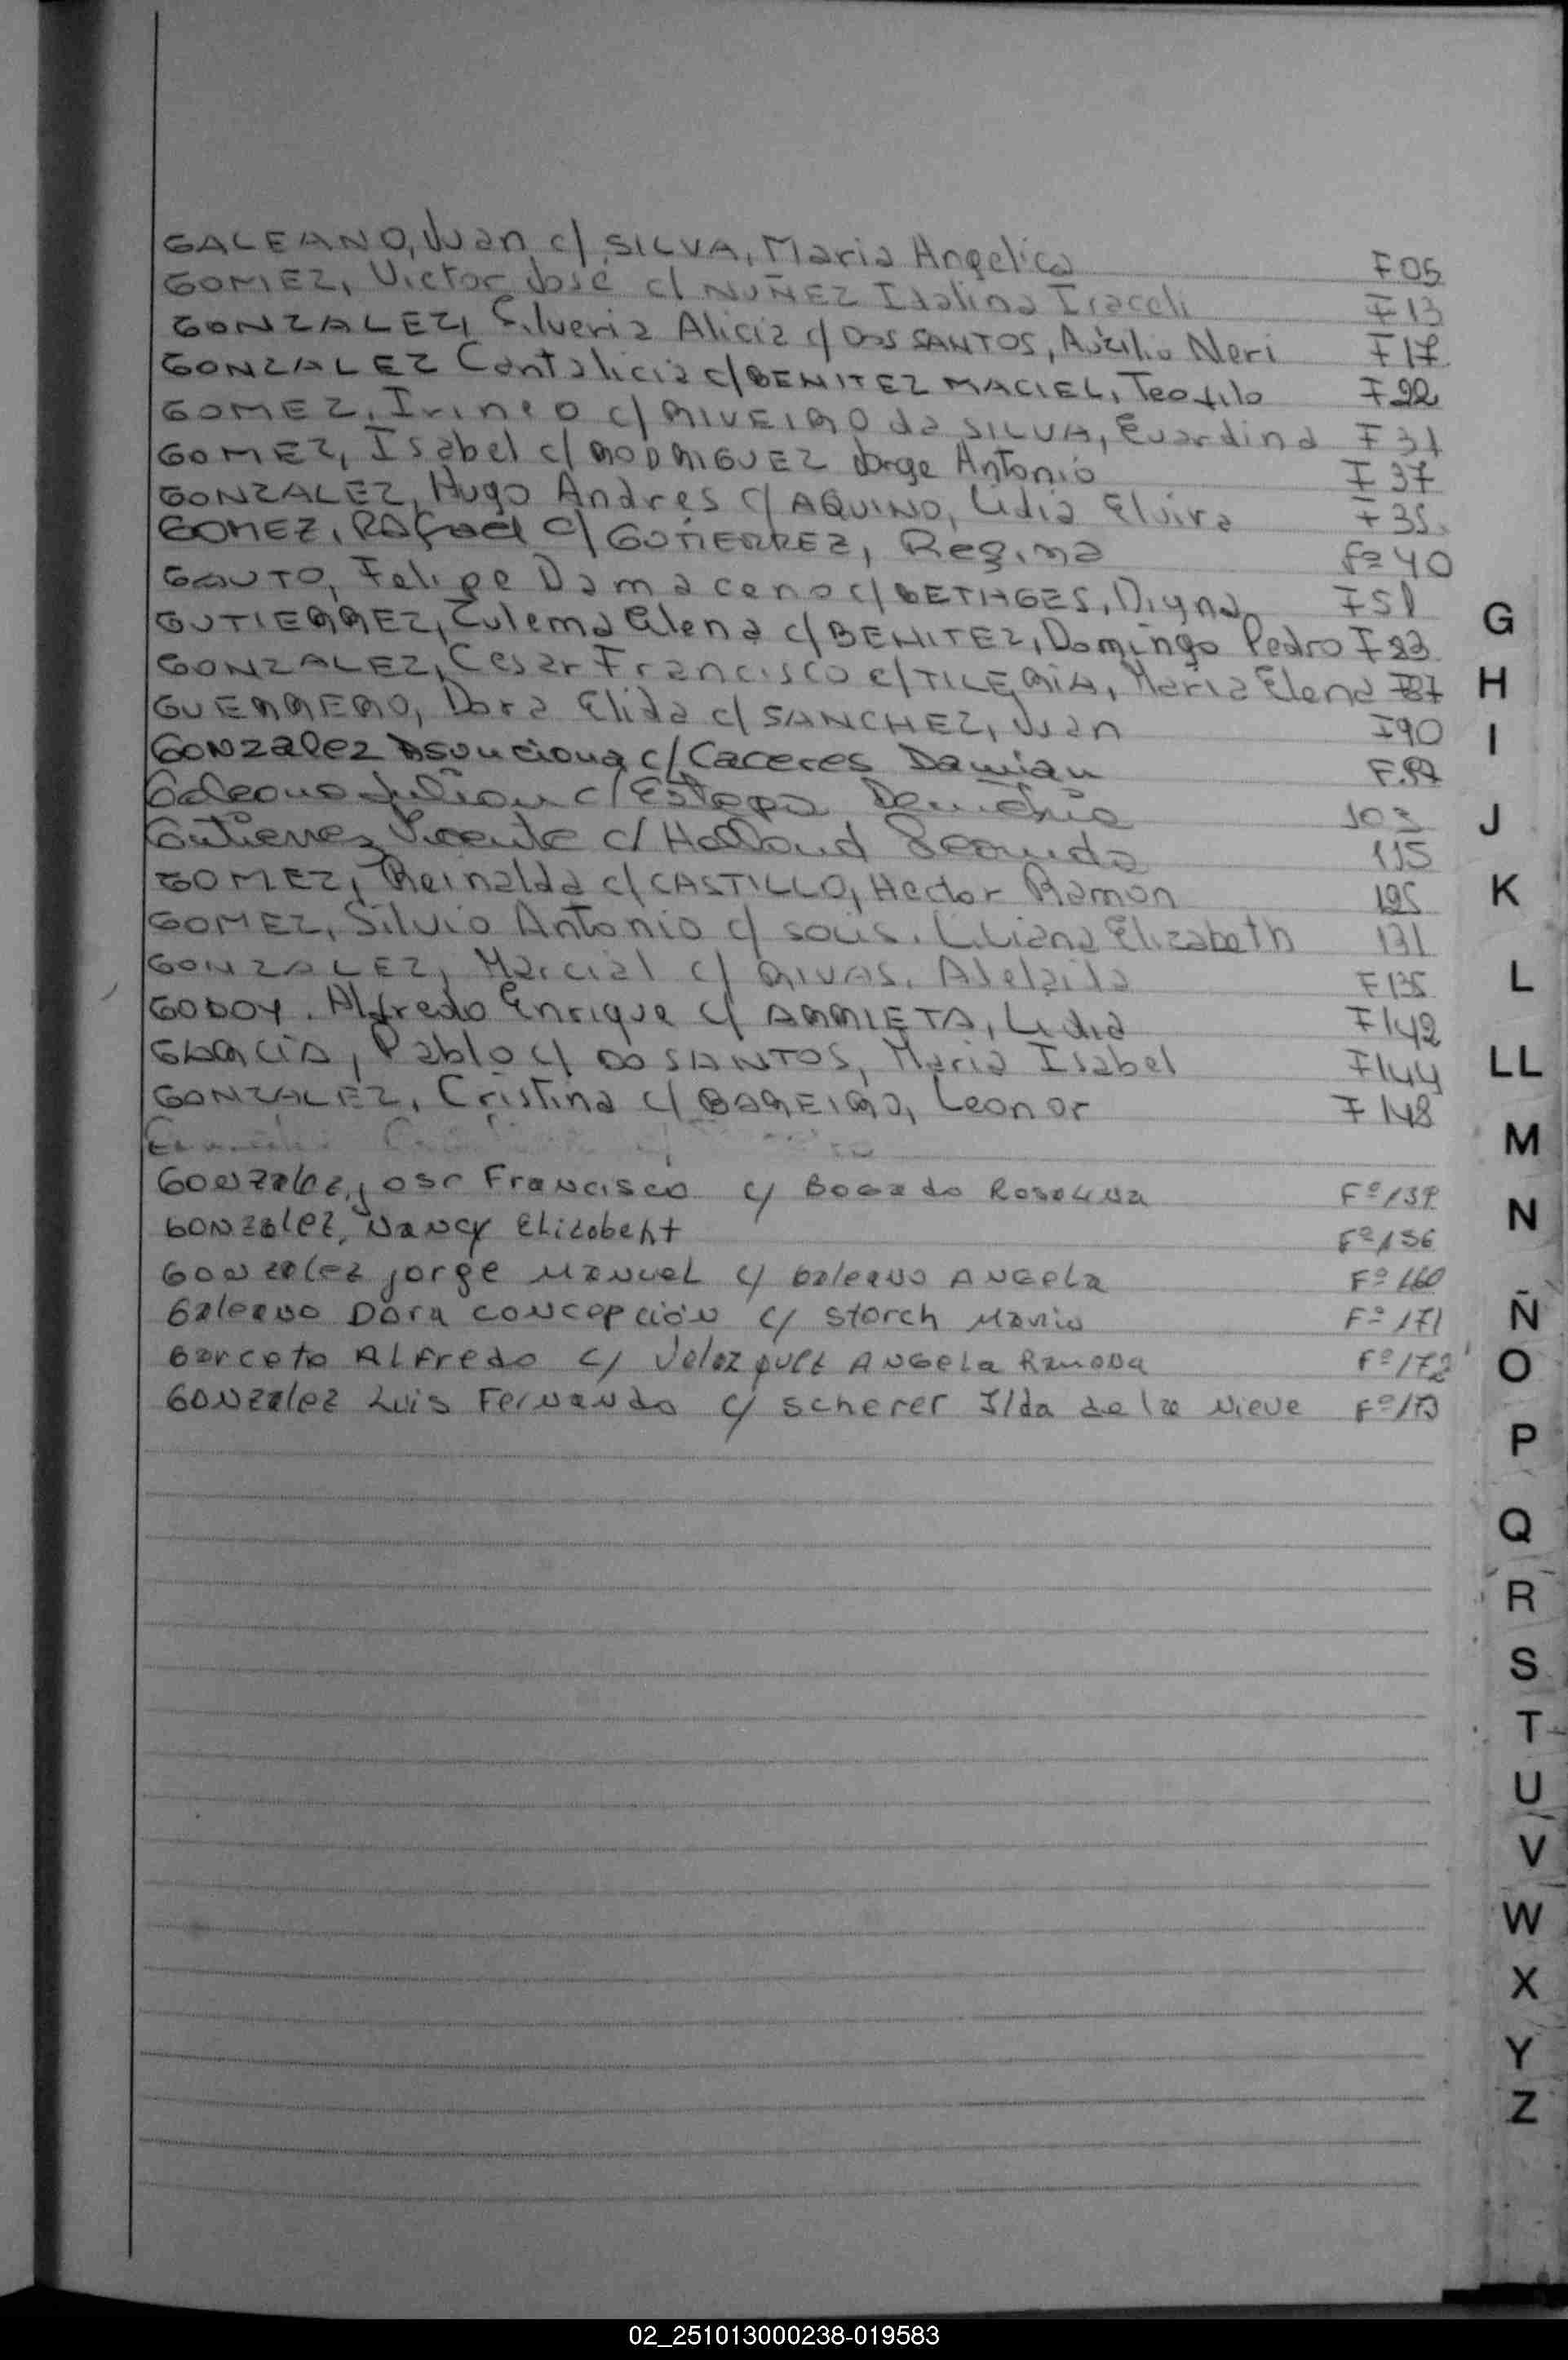 GALEANO, Juan c/ SILVA, Maria Angelica F 05
GOMEZ, Victor José c/ NUÑEZ Idalina Iraceli F 13
GONZALEZ, Silveria Alicia c/ Dos SANTOS, Auzilio Neri F 17
GONZALEZ Cantalicia c/ BENITEZ MACIEL, Teofilo F 22
GOMEZ, Irineo c/ RIVEIRO da SILVA, Evardina F 31
GOMEZ, Isabel c/ RODRIGUEZ Jorge Antonio F 37
GONZALEZ, Hugo Andres c/ AQUINO, Lidia Elvira F 35
GOMEZ, Rafael c/ GUTIERREZ, Regina Fº 40
GAUTO, Felipe Damaceno c/ BETHGES, Digna F 51
GUTIERREZ, Zulema Elena c/ BENITEZ, Domingo Pedro F 83
GONZALEZ, Cesar Francisco c/ TILERIA, Maria Elena F 87
GUERRERO, Dora Elida c/ SANCHEZ, Juan F 90
GONZalez Asunciona c/ Caceres Damian F. 97
Galeano Julian c/ Estepa 103
Gutierrez Vicente c/ Holland 115
GOMEZ, Reinalda c/ CASTILLO, Hector Ramon 125
GOMEZ, Silvio Antonio c/ SOLIS, Liliana Elizabeth 131
GONZALEZ, Marcial c/ RIVAS, Adelaida F 135
GODOY, Alfredo Enrique c/ ARRIETA, Lidia F 142
GARCIA, Pablo c/ DO SANTOS, Maria Isabel F 144
GONZALEZ, Cristina c/ BAREIRO, Leonor F 148
GONzalez, jose Francisco c/ Bogado Roselina Fº 139
GONzalez, Nancy Elizabeht Fº 156
Gonzalez jorge Manuel c/ Galeano ANGela Fº 160
Galeano Dora concepción c/ Storch Mario Fº 171
Garceto ALFredo c/ Velazquez ANGeLa Ramona Fº 172
GONzalez Luis Fernando c/ Scherer Ilda de la Nieve Fº 173
G
H
I
J
K
L
LL
M
N
Ñ
O
P
Q
R
S
T
U
V
W
X
Y
Z
02_251013000238-019583